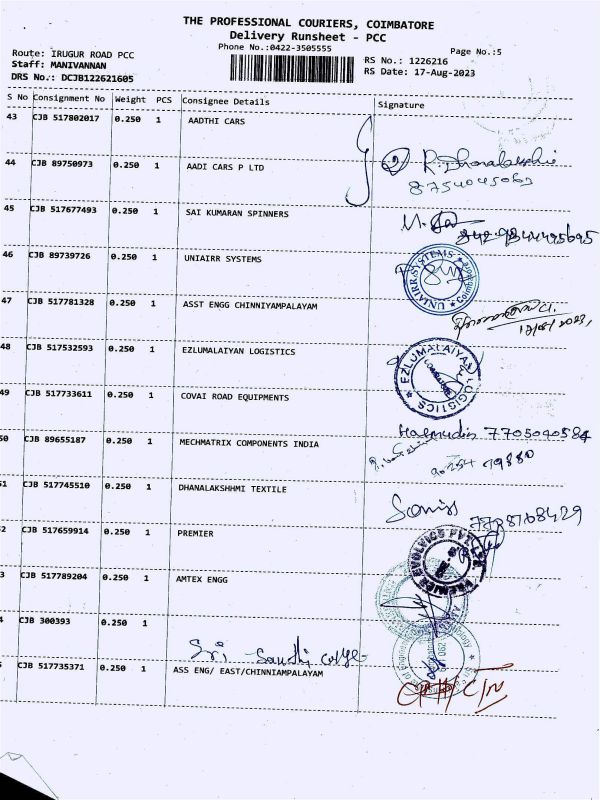 THE PROFESSIONAL COURIERS, COIMBATORE
Delivery Runsheet - PCC
Phone No.:0422-3505555
Page No.:5
Route: IRUGUR ROAD PCC
Staff: MANIVANNAN
DRS No.: DCJB122621605
RS No.: 1226216
RS Date: 17-Aug-2023
S No Consignment No Weight PCS Consignee Details Signature
43 CJB 517802017 0.250 1 AADTHI CARS
44 CJB 89750973 0.250 1 AADI CARS P LTD
8754045063
45 CJB 517677493 0.250 1 SAI KUMARAN SPINNERS
46 CJB 89739726 0.250 1 UNIAIRR SYSTEMS
UNIAIRR SYSTEMS
47 CJB 517781328 0.250 1 ASST ENGG CHINNIYAMPALAYAM
48 CJB 517532593 0.250 1 EZLUMALAIYAN LOGISTICS
EZLUMALAIYAN LOGISTICS
COIMBATORE
49 CJB 517733611 0.250 1 COVAI ROAD EQUIPMENTS
7705040584
50 CJB 89655187 0.250 1 MECHMATRIX COMPONENTS INDIA
51 CJB 517745510 0.250 1 DHANALAKSHHMI TEXTILE
52 CJB 517659914 0.250 1 PREMIER
PREMIER EVOLVICS PVT LTD
3 CJB 517789204 0.250 1 AMTEX ENGG
4 CJB 300393 0.250 1
Sri
5 CJB 517735371 0.250 1 ASS ENG/ EAST/CHINNIAMPALAYAM